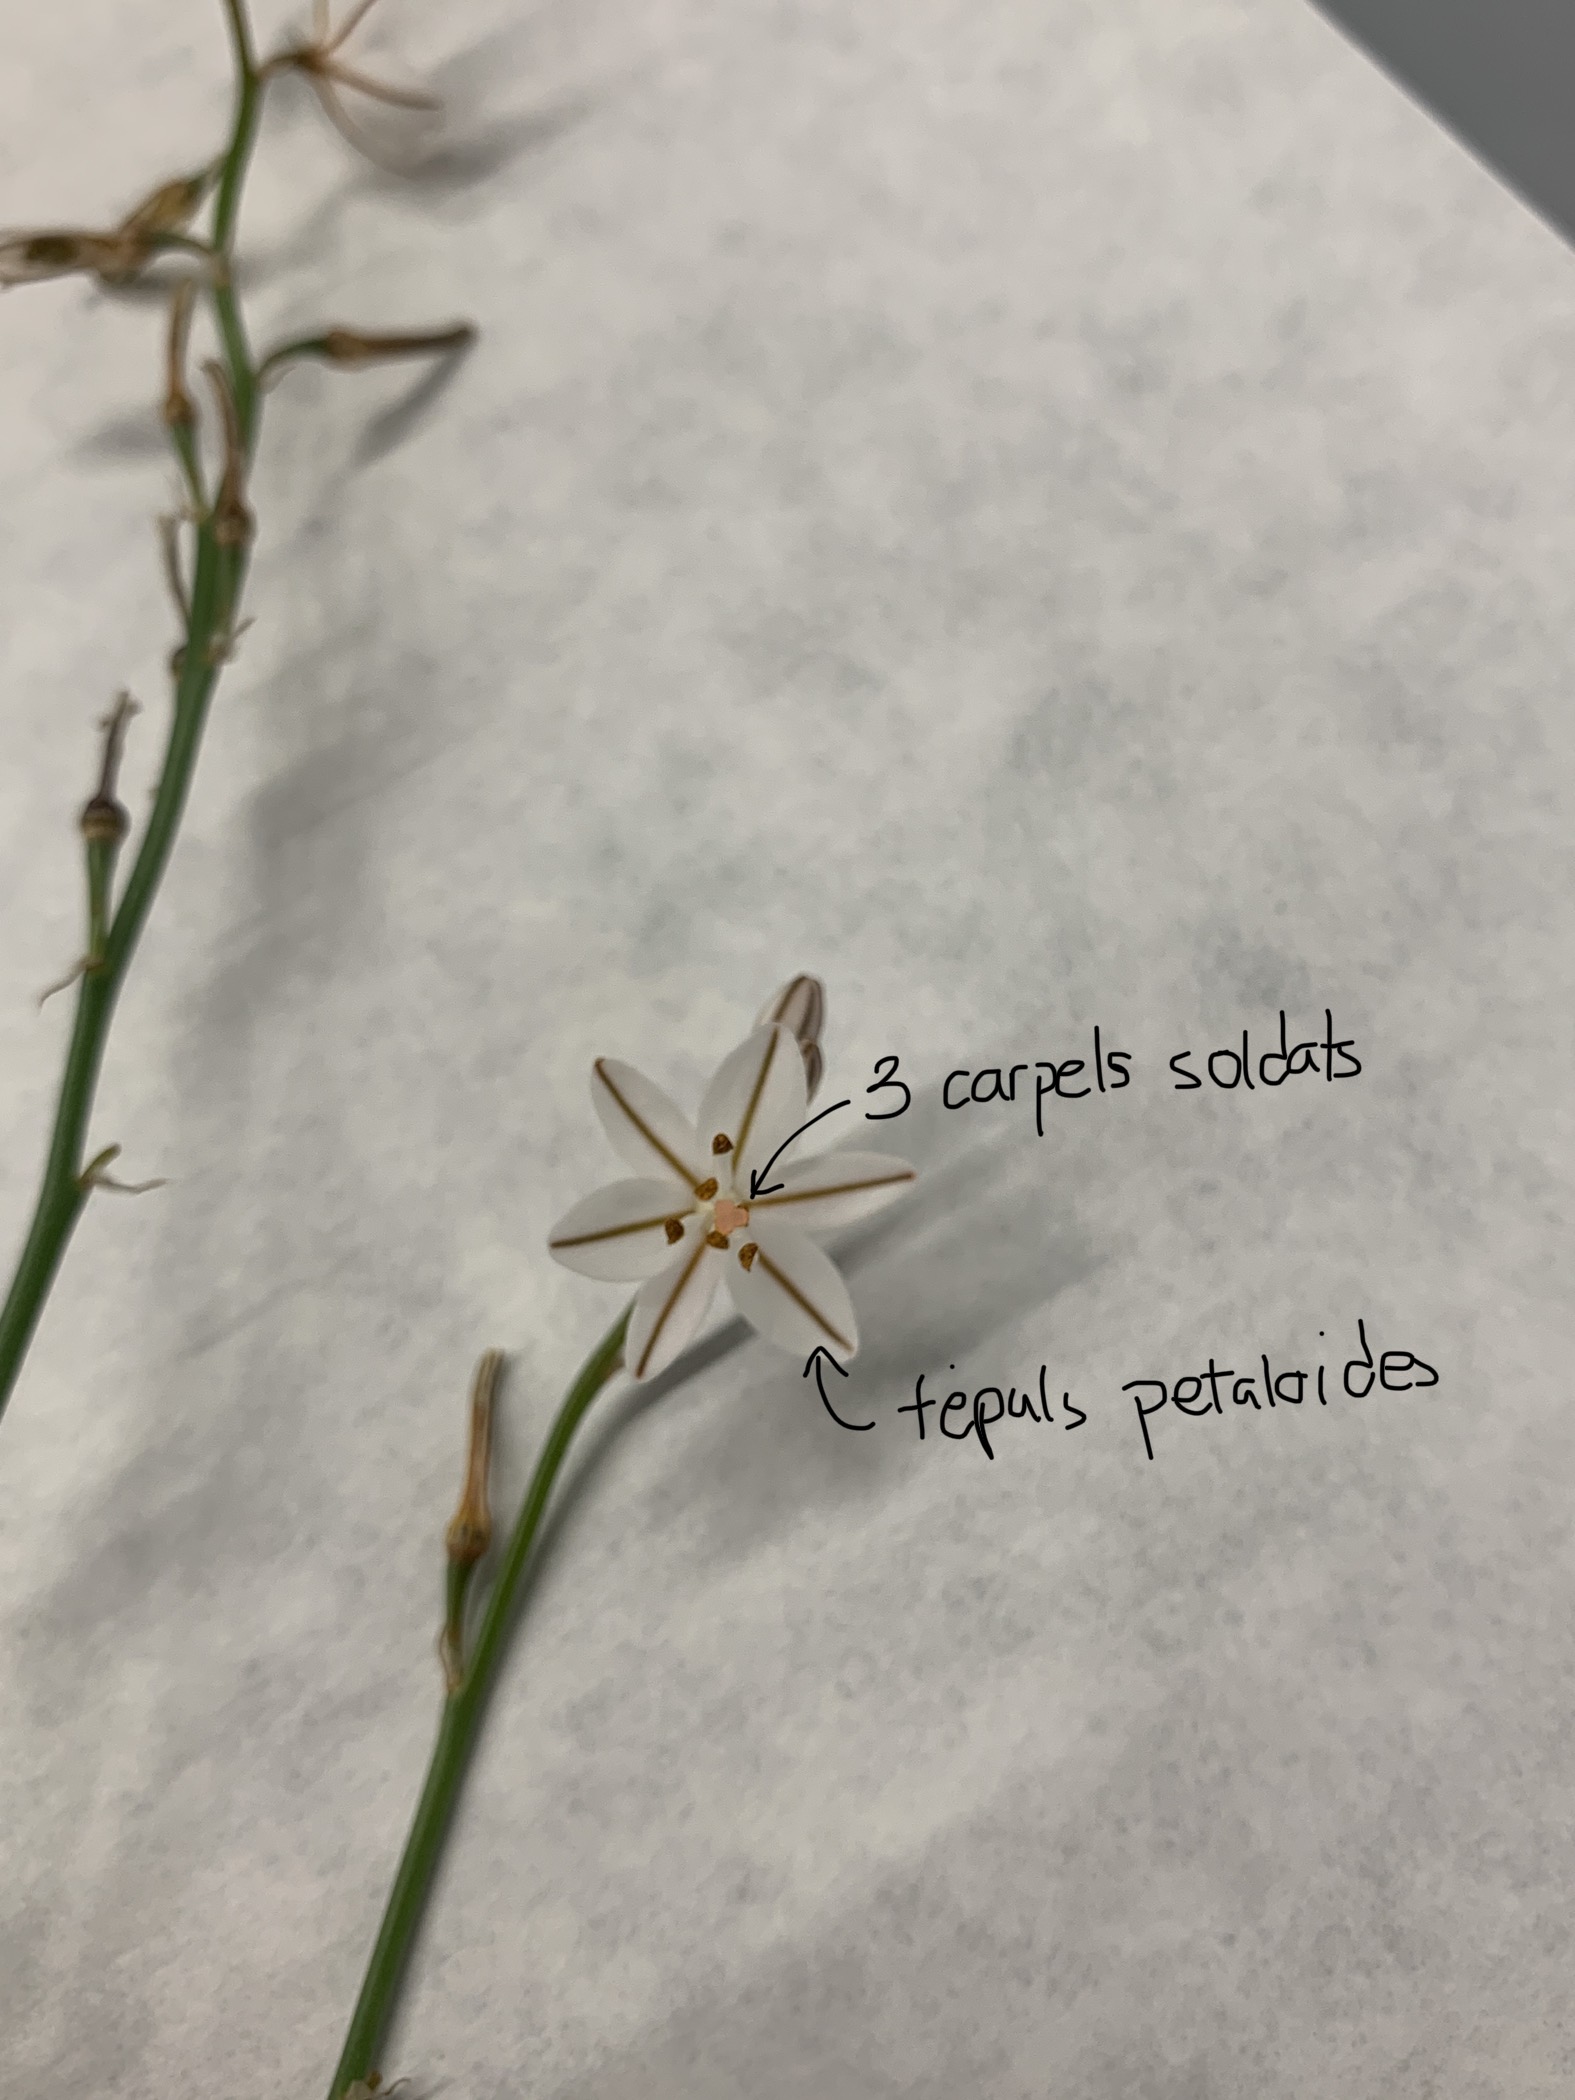 3 carpels soldats
tèpals petaloides